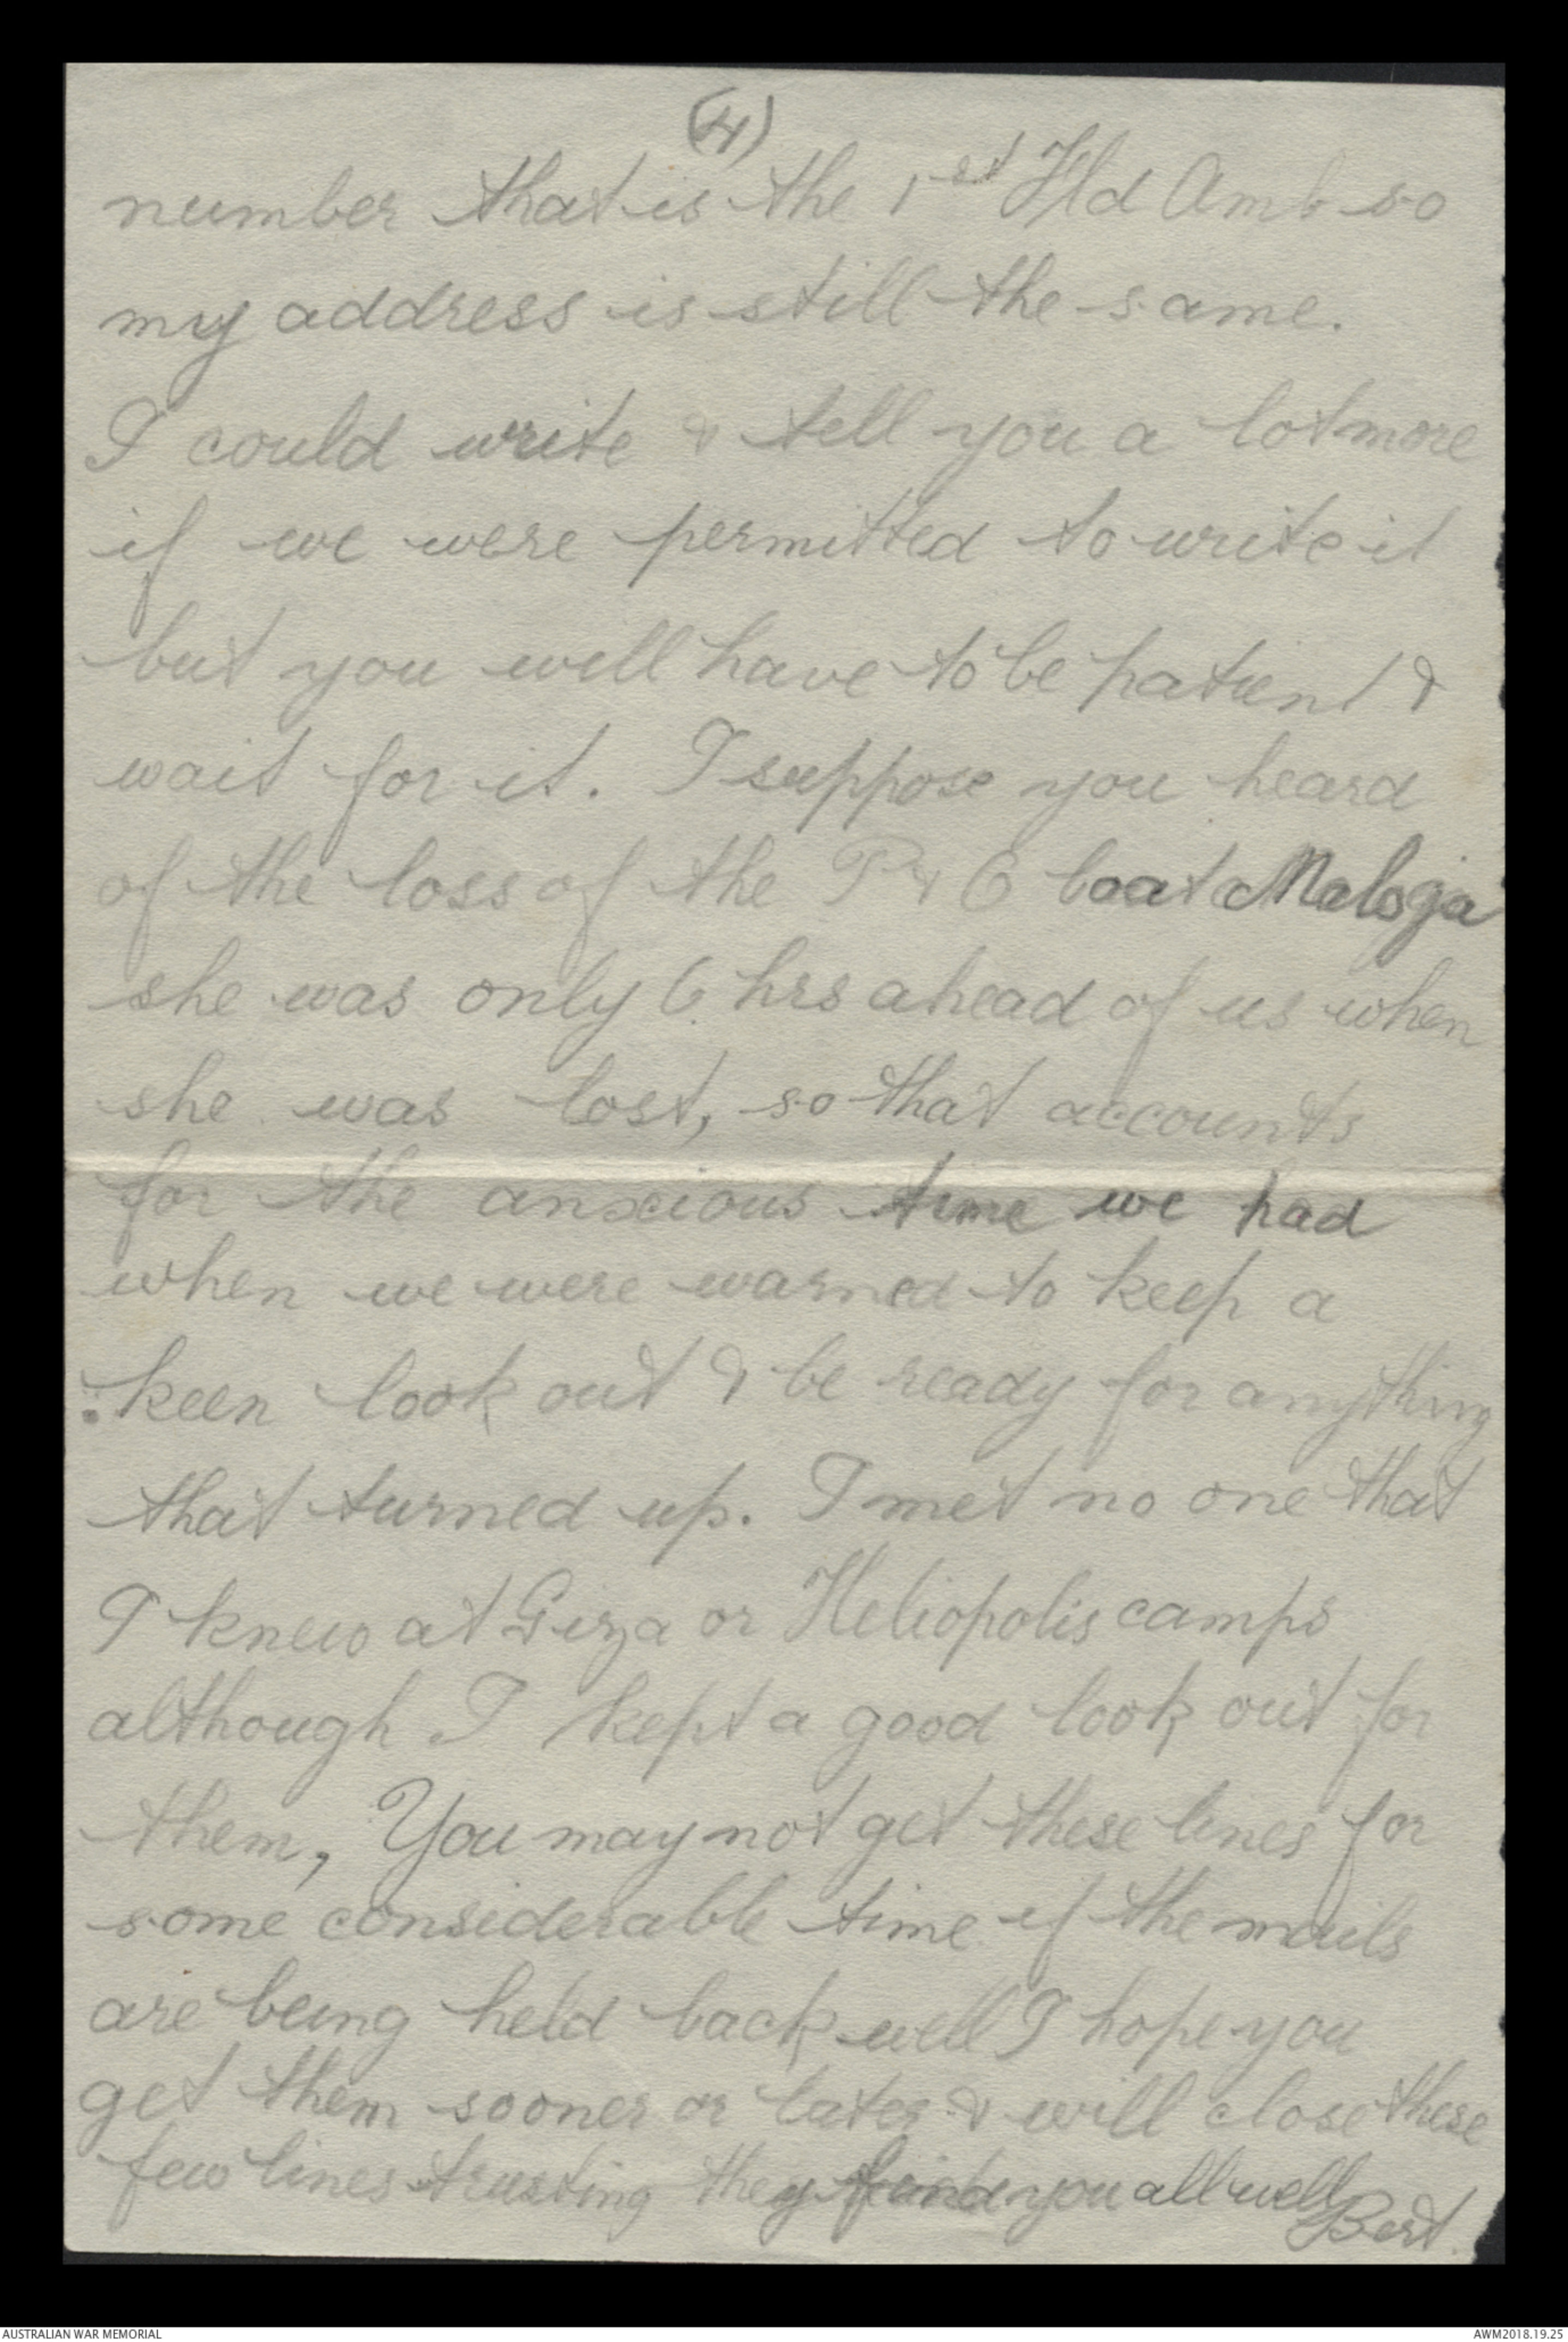 (4)
number that is the 1st Fld Amb so
my address is still the same.
I could write & tell you a lot more
if we were permitted to write it
but you will have to be patient &
wait for it. I suppose you heard
of the loss of the P & O boat Maloja
she was only 6 hrs ahead of us when
she was lost, so that accounts
for the anxious time we had
when we were warned to keep a
keen look out & be ready for anything
that turned up. I met no one that
I knew at Giza or Heliopolis camps
although I kept a good look out for
them, You may not get these lines for
some considerable time if the mails
are being held back well I hope you
get them sooner or later & will close these
few lines trusting they find you all well
Bert.
AUSTRALIAN WAR MEMORIAL
AWM2018.19.25